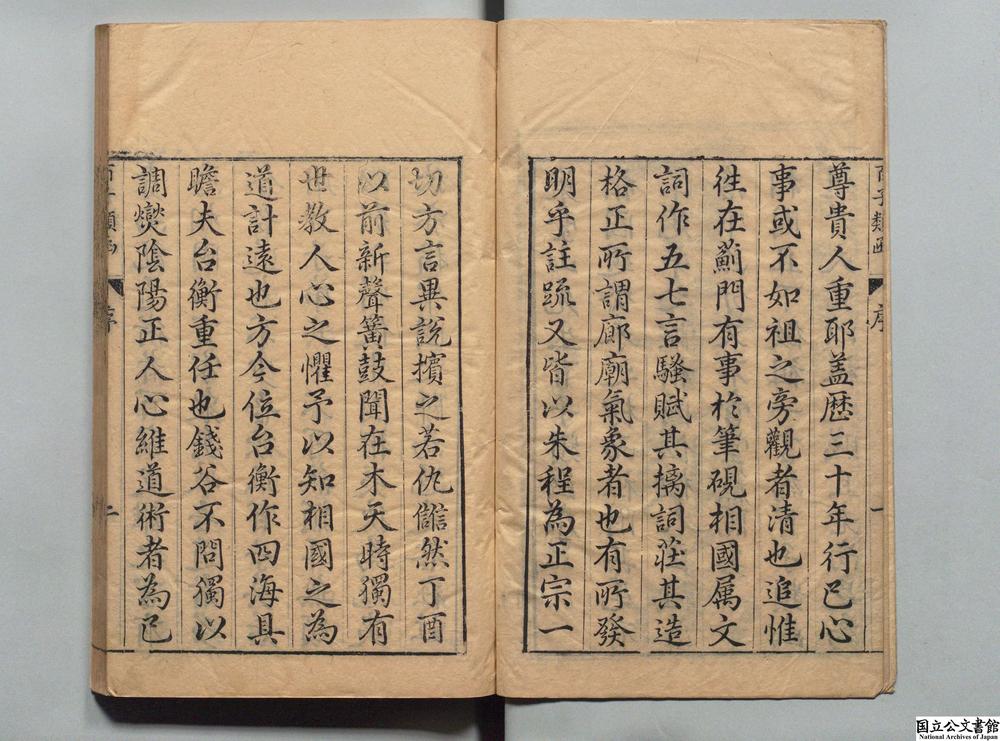 百子類函
序
一
尊貴人重耶盖歴三十年行已心
事或不如祖之旁觀者清也追惟
徃在薊門有事於筆硯相國属文
詞作五七言騷賦其摛詞莊其造
格正所謂廊廟氣象者也有所發
明乎註疏又皆以朱程為正宗一
切方言異說擯之若仇讎然丁酉
以前新聲簧鼓聞在木天時獨有
世教人心之懼予以知相國之為
道計遠也方今位台衡作四海具
瞻夫台衡重任也錢谷不問獨以
調燮陰陽正人心維道術者為已
百子類函
序
二
国立公文書館
National Archives of Japan